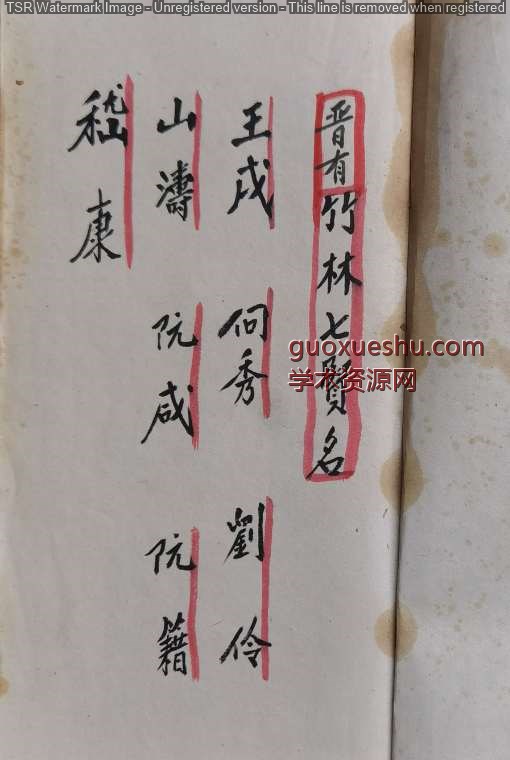 TSR Watermark Image - Unregistered version - This line is removed when registered
晋有竹林七賢名
王戎 向秀 劉伶
山濤 阮咸 阮籍
嵇康
guoxueshu.com
学术资源网